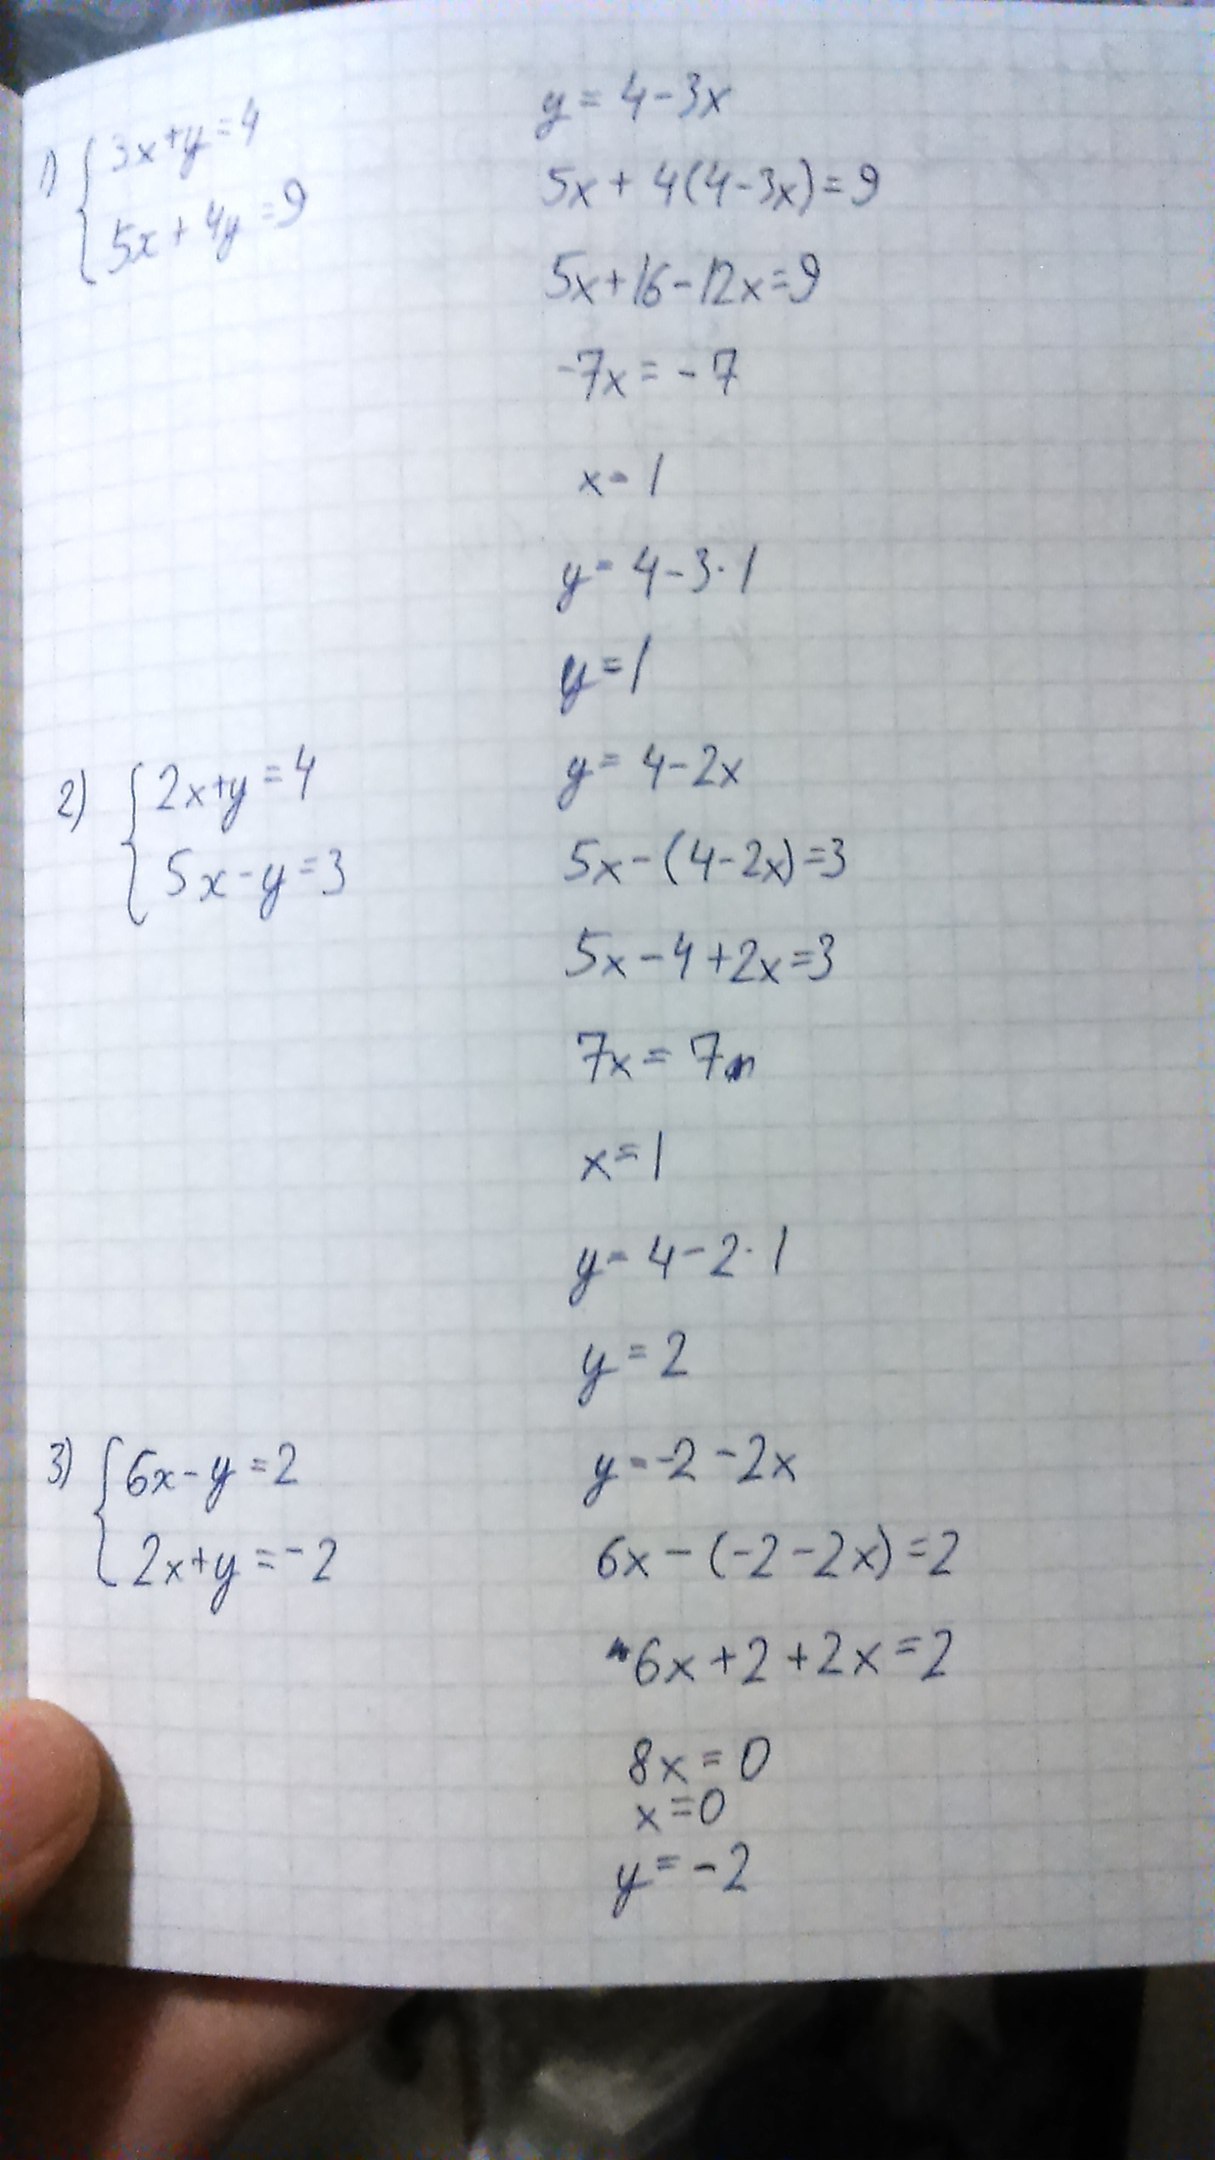 1) 3x+y=4
5x+4y=9
y=4-3x
5x+4(4-3x)=9
5x+16-12x=9
-7x=-7
x=1
y=4-3·1
y=1
2) 2x+y=4
5x-y=3
y=4-2x
5x-(4-2x)=3
5x-4+2x=3
7x=7
x=1
y=4-2·1
y=2
3) 6x-y=2
2x+y=-2
y=-2-2x
6x-(-2-2x)=2
6x+2+2x=2
8x=0
x=0
y=-2